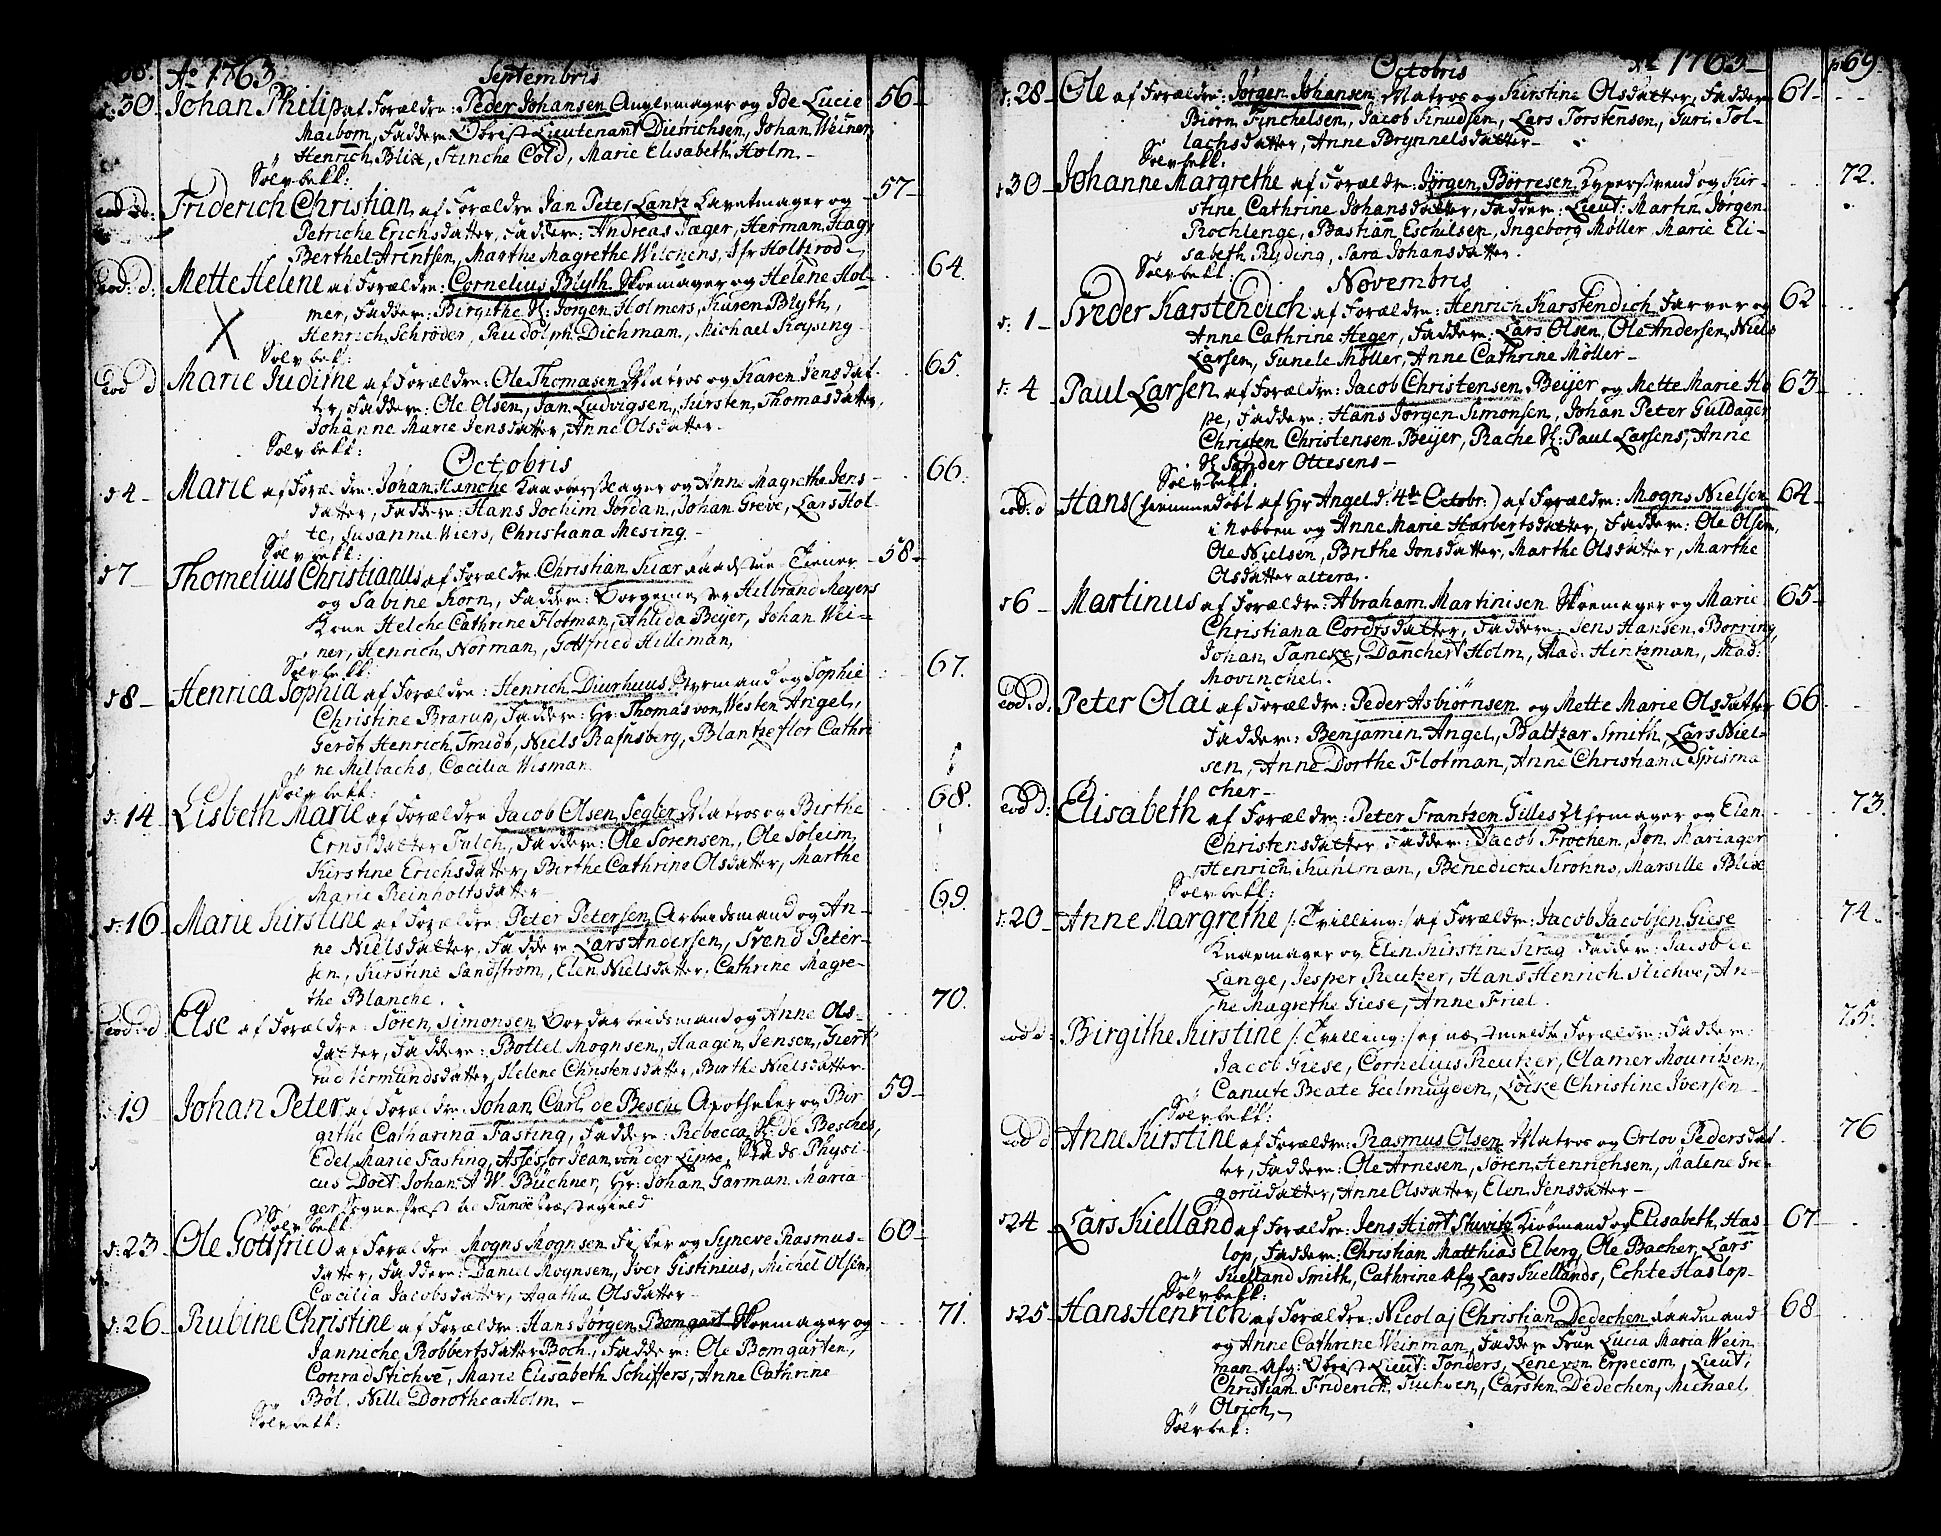 68. Ao 1763. Septembris
d: 30. Johan Philip af Forældre: Peder Johansen Anglemager og Ide Lucie 56
Maibom, Faddere Obrest Lieutenant Dietrichsen, Johan Weiner
Henrich Blix, Stinche Cold, Marie Elisabeth Holm.
Sölvbell:
eod: d: Friderich Christian af Forældre Jan Peter Lantz Lavetmager og 57
Petriche Erichsdatter, Faddere: Andreas Jæger, Herman Hag,
Berthel Arentsen, Marthe Magrethe Wilchens, Jfr Holtzrod
eod: d: Mette Helene af Forældre: Cornelius Blyth Skoemager og Helene Hol- 64.
mer, Faddere: Birgithe K: Jørgen Holmers, Karen Blyth,
Henrich Schrøder, Rudolph Dichman, Michael Krysing
Sölvbell:
eod d Marie Judithe af Forældre: Ole Thomæsen Matros og Karen Jensdat- 65.
ter, Faddere: Ole Olsen, Jan Ludvigsen, Kirsten Thomasdatter,
Johanne Marie Jensdatter, Anne Olsdatter.
Sölvbell:
Octobris
d 4 Marie af Forældre: Johan Hanche Kaabberslager og Anne Magrethe Jens- 66.
datter, Faddere: Hans Jochim Jordan, Johan Greve, Lars Hol-
te, Susanna Wiers, Christiana Mesing
Sölvbell:
d 7 Thomelius Christianus af Forældre Christian Kiær Raadstue Tiener 58
og Sabine Korn, Faddere: Borgemester Hilbrand Meyers
Kone Helche Cathrine Flotman, Ahlida Beyer, Johan Wei-
ner, Henrich Norman, Gottfried Hilleman,
Sölvbell:
d 8 Henrica Sophia af Forældre: Henrich Diurhuus Styrmand og Sophie 67.
Christine Brarup, Faddere: Hr Thomas von Westen Angel,
Gerdt Henrich Smidt, Niels Rafnsberg, Blantzeflor Cathri
ne Milbachs, Cæcilia Wisman
Sölvbell:
d: 14 Lisbeth Marie af Forældre Jacob Olsen Segler Matros og Birthe 68.
Ernstdatter Fulch, Faddere: Ole Sørensen, Ole Soleim
Kirstine Erichsdatter, Birthe Cathrine Olsdatter, Marthe
Marie Reinholtsdatter
d: 16 Marie Kirstine af Forældre: Peter Petersen Arbeidsmand og An- 69.
ne Nielsdatter, Faddere Lars Andersen, Svend Peter-
sen, Kirstine Sandstrøm, Elen Nielsdatter, Cathrine Magre-
the Blanche.
eod: d Else af Forældre: Sören Simonsen Bordarbeidsmand og Anne Ols- 70.
datter, Faddere: Bottel Mognsen, Haagen Jensen, Giert
rud Vermundsdatter, Helene Christensdatter, Birthe Nielsdatter
19 Johan Peter af Forældre: Johan Carl de Besche Apotheker og Bir 59
githe Catharina Fasting, Faddere: Rebecca K: de Besches,
Edel Marie Fasting, Assessor Jean von der Lippe, Stads Physi-
cus Doct: Johan A W. Büchner, Hr: Johan Garman Maria
ger Sognepræst til Fanöe Præstegield
Sölvbell
d: 23 Ole Gottfried af Forældre Mogns Mognsen Fisker og Syneve Rasmus- 60
datter, Faddere: Daniel Mognsen, Iver Gistinius, Michel Olsen,
Cæcilia Jacobsdatter, Agatha Olsdatter
d: 26 Rubine Christine af Forældre: Hans Jørgen Bomgart Skoemager og 71.
Janniche Robbertsdatter Boch, Faddere: Ole Bomgarten,
Conrad Stichve, Marie Elisabeth Schiffers, Anne Cathrine
Böl, Nille Dorothea Holm
Sölvbell:
Octobris Ao 1763 p 69.
d: 28 Ole af Forældre: Jørgen Johansen Matros og Kirstine Olsdatter, Faddere 61
Biörn Finchelsen, Jacob Knudsen, Lars Torstensen, Guri Tol-
lachsdatter, Anne Brynnelsdatter
Sölvbell:
d 30 Johanne Margrethe af Forældre: Jörgen Börresen Kypersvend og Kir- 72.
stine Cathrine Johansdatter, Faddere: Lieut: Martin Jørgen
Rochlenge, Bastian Eschilsen, Ingeborg Møller Marie Eli-
sabeth Ryding, Sara Johansdatter.
Sölvbell:
Novembris
d: 1 Sveder Karstendich af Forældre: Henrich Karstendich Farver og 62
Anne Cathrine Heger, Faddere: Lars Olsen, Ole Andersen, Niels
Larsen, Gunele Møller, Anne Cathrine Møller
d: 4 Paul Larsen af Forældre: Jacob Christensen Beyer og Mette Marie Ho 63
pe, Faddere: Hans Jørgen Simonsen, Johan Peter Guldager
Christen Christensen Beyer, Rache K: Paul Larsens, Anne
K Sander Ottesens
Sölvbell.
eod: d Hans (hiemmedöbt af Hr Angel d: 4de Octobr:) af Forældre: Mogns Nielsen 64
i Nobben og Anne Marie Harbertsdatter, Faddere: Ole Olsen,
Ole Nielsen, Brithe Jonsdatter, Marthe Olsdatter, Marthe
Olsdatter altera.
d 6 Martinus af Forældre: Abraham Martinisen Skoemager og Marie 65
Christiana Cordtsdatter, Faddere: Jens Hansen Borring,
Johan Taneke, Danchert Holm, Mad: Hintzman, Mad:
Movinchel.
eod: d. Peter Olai af Forældre: Peder Asbiörnsen og Mette Marie Olsdatter 66
Faddere: Benjamin Angel, Baltzar Smith, Lars Niel-
sen, Anne Dorthe Flotman, Anne Christiana Sprisma
cher
eod d: Elisabeth af Forældre: Peter Frantzen Gilles Uhrmager og Elen 73.
Christensdatter Faddere: Jacob Frochen, Jon Mariager
Henrich Kuhlman, Benedicta Krohns, Marsille Blix
Sölvbell:
d: 20 Anne Margrethe /: Tvilling :/ af Forældre: Jacob Jacobsen Giese 74.
Knapmager og Elen Kirstine Krag Faddere: Jacob de
Lange, Jesper Reutzer, Hans Henrich Stichve, An-
ne Magrethe Giese, Anne Friel.
eod d: Birgithe Kirstine /: Tvilling :/ af næstmeldte Forældre: Faddere: 75.
Jacob Giese, Cornelius Reutzer, Clamer Mouritzen,
Canute Beate Geelmuyden, Löiske Christine Iversen
Sölvbell:
eod d Anne Kirstine af Forældre: Rasmus Olsen Matros og Orlov Pedersdat- 76
ter, Faddere: Ole Arnesen, Sören Henrichsen, Malene Gre-
goriidatter, Anne Olsdatter, Elen Jensdatter
d 24 Lars Kielland af Forældre: Jens Hiort Stuvitz Kiöbmand og Elisabeth Has- 67
lop, Faddere: Christian Matthias Elberg, Ole Bacher, Lars
Kielland Smith, Cathrine Afg Lars Kiellands, Echte Haslop
Sölvbell:
d 25 Hans Henrich af Forældre: Nicolaj Christian Dedechen Raadmand 68
og Anne Cathrine Weinman, Faddere Frue Lucia Maria Wein
man Afg: Obrest Lieut: Tonders, Lene von Erpecom, Lieut:
Christian Friderich Tuchsen, Carsten Dedechen, Michael
Olrich
Sölvbel: